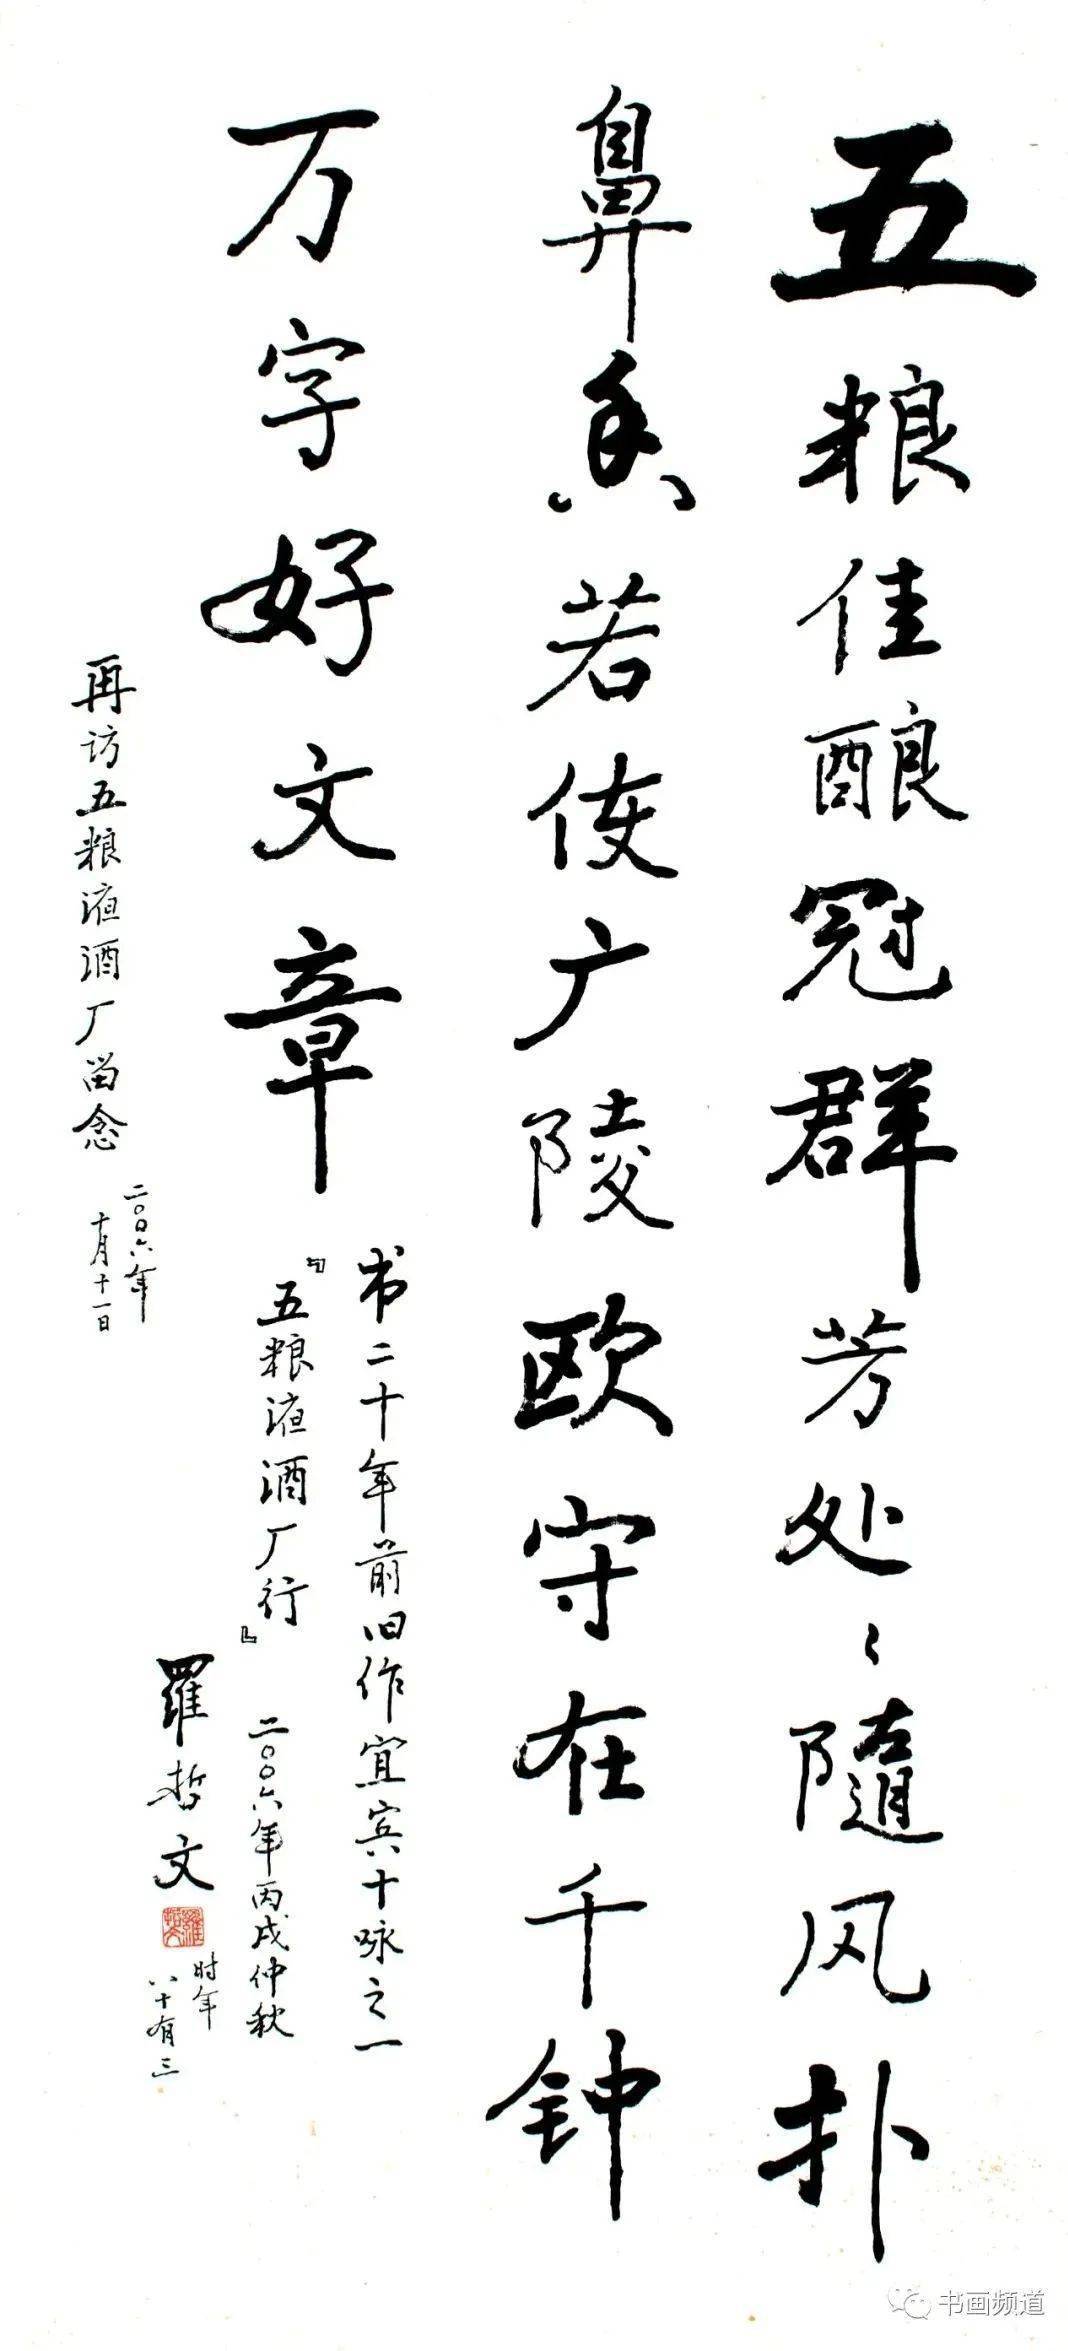 五粮佳酿冠群芳处〻随风扑
鼻香若使广陵欧守在千钟
万字好文章
书二十年前旧作宜宾十咏之一
『五粮液酒厂行』二〇〇六年丙戌仲秋
羅哲文
时年
八十有三
再访五粮液酒厂留念
二〇〇六年
十月十一日
羅哲文
书画频道